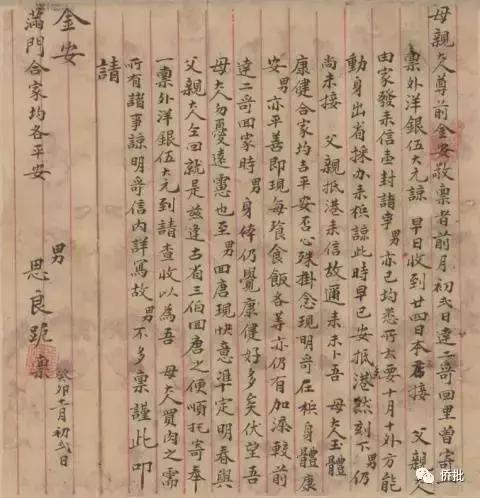 母親大人尊前金安敬稟者前月初弍日達二哥回里曾寄
稟外洋銀伍大元諒 早日收到廿四日本接 父親
由家發来信壹封諸事男亦已均悉所云要十月十外方能
動身出省採办来梹諒此時早已安抵港然刻下男仍
尚未接 父親抵港来信故通来未卜吾 母大人玉體
康健合家均吉平安否心殊掛念現明哥在梹身體康
安男亦平善即現每飡食飯各等亦仍有加添較前
達二哥回家時男身体仍覺康健好多矣伏望吾
母大人勿憂遠慮也至男回唐現快意準定明春與
父親大人仝回就是兹逢古省三伯回唐之便順托寄奉
一稟外洋銀伍大元到請查收以為吾 母大人買肉之需
所有諸事諒明哥信內詳寫故男不多稟謹此叩
請
金安
滿門合家均各平安
男 思良跪稟
癸卯十一月初弍日
侨批